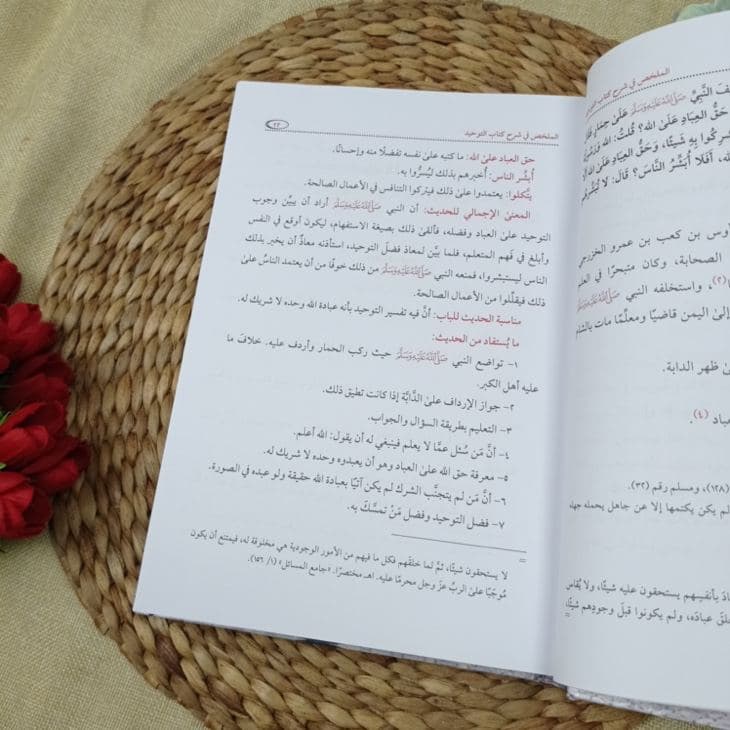 الملخص في شرح كتاب التوحيد
فَ النَّبِيِّ ﷺ عَلَىٰ حِمَارٍ
حَقُّ العِبَادِ عَلَىٰ الله؟ قُلْتُ: الله
شْرِكُوا بِهِ شَيْئًا، وَحَقُّ العِبَادِ عَلَىٰ الله
الله، أَفَلَا أُبَشِّرُ النَّاسَ؟ قَالَ: لَا تُبَشِّرْهُم
أوس بن كعب بن عمرو الخزرجي
الصحابة، وكان متبحرًا في العلم
(٣)، واستخلفه النبي ﷺ
إلىٰ اليمن قاضيًا ومعلِّمًا مات بالشام
ىٰ ظهر الدابة.
عباد (٤).
(١٢٨)، ومسلم رقم (٣٢).
لم يكن يكتمها إلا عن جاهل يحمله جهله
بادَ بأنفسِهم يستحقون عليه شيئًا، ولا يُقاس
خلقَ عبادَه، ولم يكونوا قبلَ وجودِهم شيئًا،
=
الملخص في شرح كتاب التوحيد ٢٣
حق العباد علىٰ الله: ما كتبه علىٰ نفسه تفضلًا منه وإحسانًا.
أُبشِّر الناس: أُخبرهم بذلك ليُسرُّوا به.
يتَّكلوا: يعتمدوا علىٰ ذلك فيتركوا التنافس في الأعمال الصالحة.
المعنىٰ الإجمالي للحديث: أن النبي ﷺ أراد أن يبيِّن وجوب
التوحيد علىٰ العباد وفضله، فألقىٰ ذلك بصيغة الاستفهام، ليكون أوقع في النفس
وأبلغ في فهم المتعلم، فلما بيَّن لمعاذ فضلَ التوحيد، استأذنه معاذٌ أن يخبر بذلك
الناس ليستبشروا، فمنعه النبي ﷺ من ذلك خوفًا من أن يعتمد الناسُ علىٰ
ذلك فيقلِّلوا من الأعمال الصالحة.
مناسبة الحديث للباب: أنَّ فيه تفسير التوحيد بأنه عبادة الله وحده لا شريك له.
ما يُستفاد من الحديث:
١- تواضع النبي ﷺ حيث ركب الحمار وأردف عليه. خلافَ ما
عليه أهل الكبر.
٢- جواز الإرداف علىٰ الدَّابَّة إذا كانت تطيق ذلك.
٣- التعليم بطريقة السؤال والجواب.
٤- أنَّ مَن سُئل عمَّا لا يعلم فينبغي له أن يقول: الله أعلم.
٥- معرفة حق الله علىٰ العباد وهو أن يعبدوه وحده لا شريك له.
٦- أنَّ مَن لم يتجنَّب الشرك لم يكن آتيًا بعبادة الله حقيقة ولو عبده في الصورة.
٧- فضل التوحيد وفضل مَنْ تمسَّك به.
=
لا يستحقون شيئًا، ثمَّ لما خلقَهم فكل ما فيهم من الأمور الوجودية هي مخلوقة له، فيمتنع أن يكون
مُوجَبًا علىٰ الربِّ عزَّ وجل محرمًا عليه. اهـ مختصرًا. «جامع المسائل» (١/ ١٥٦).